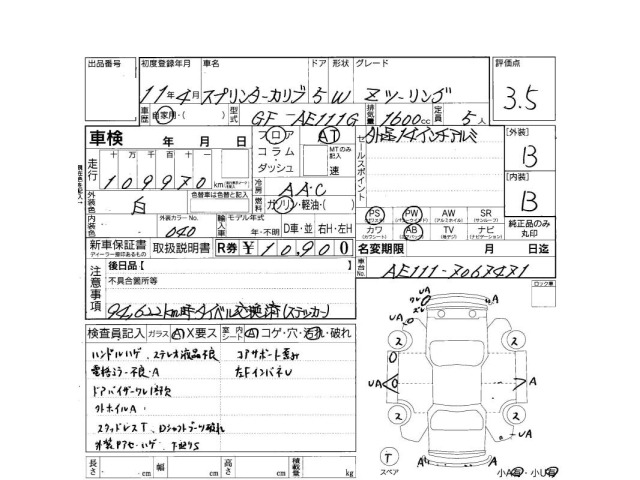 出品番号 初度登録年月 車名 ドア 形状 グレード 評価点
11年4月 スプリンターカリブ 5 W Zツーリング 3.5
車歴 自家用・( ) 型式 GF-AE111G 排気量 1600cc 定員 5人
車検 年 月 日 フロア コラム・ダッシュ AT MTのみ記入 速 セールスポイント 外品14インチアルミ [外装] B
走行 十 万 千 百 十 109970 km
冷房 AAC [内装] B
外装色 白 色替車は色替と記入 燃料 ガソリン・軽油・( )
PS PW AW SR 純正品のみ丸印
(パワステ) (パワーウインド) (アルミホイル) (サンルーフ)
内装色 外装カラーNo. 040 輸入車 モデル年式 年・不明 D車・並 右H・左H カワ AB TV ナビ
(カワシート) (エアバック) (ナビゲーション)
新車保証書 取扱説明書 R券 ¥ 10,900 名変期限 月 日迄
ディーラー捺印あるもの
注意事項 後日品【 】 車台No. AE111-7067471
不具合箇所等 ロック車
94,622km時タイベル交換済(ステッカー)
検査員記入 ガラス A X要ス 室内シート A コゲ・穴・汚れ・破れ
ハンドルハゲ、ステレオ液晶不良 コアサポート歪み
電格ミラー不良・A 左FインパネU
ドアバイザーワレ1ヶ所
外ホイルA
スタッドレスT、Dシャフトブーツ破れ
外装Pアセ・ハゲ、下廻りS
長さ . cm 幅 . cm 高さ . cm 積載量 kg
UA
ワレ
ズレ
UA
2 2
UA A
2 2
UA
T スペア A
小A有・小U有